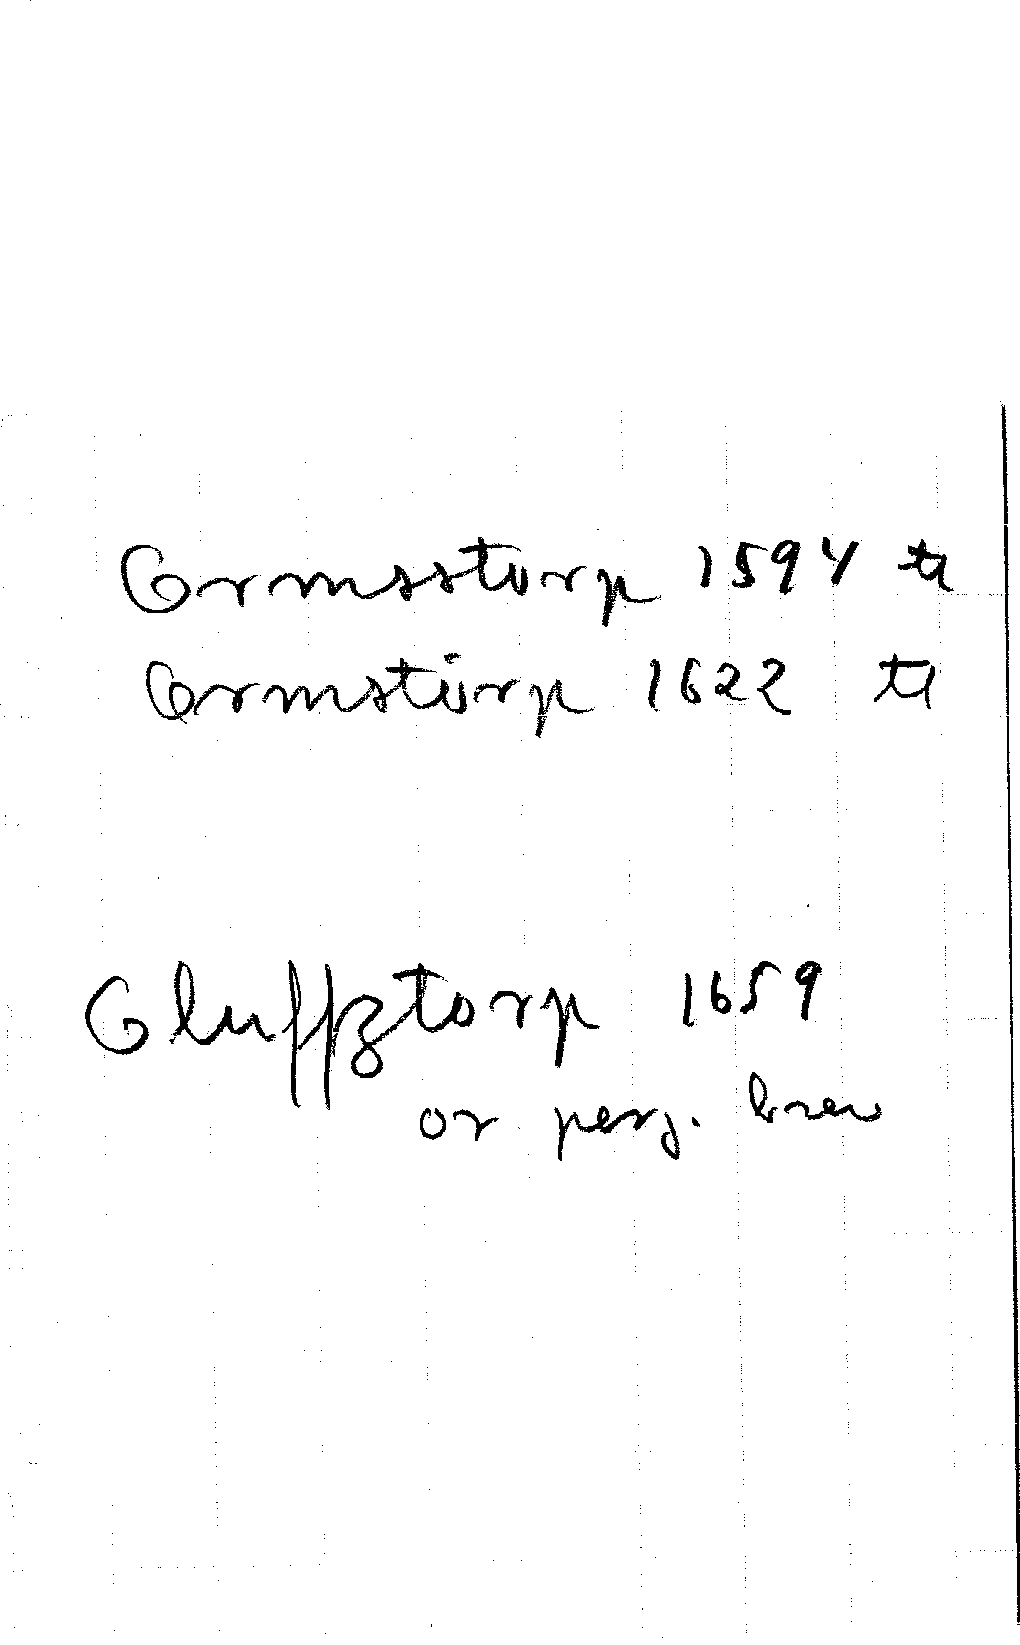 Ormsstorp 1594 tl
Ormstörp 1622 tl
Oluffztorp 1659
or perg. brev